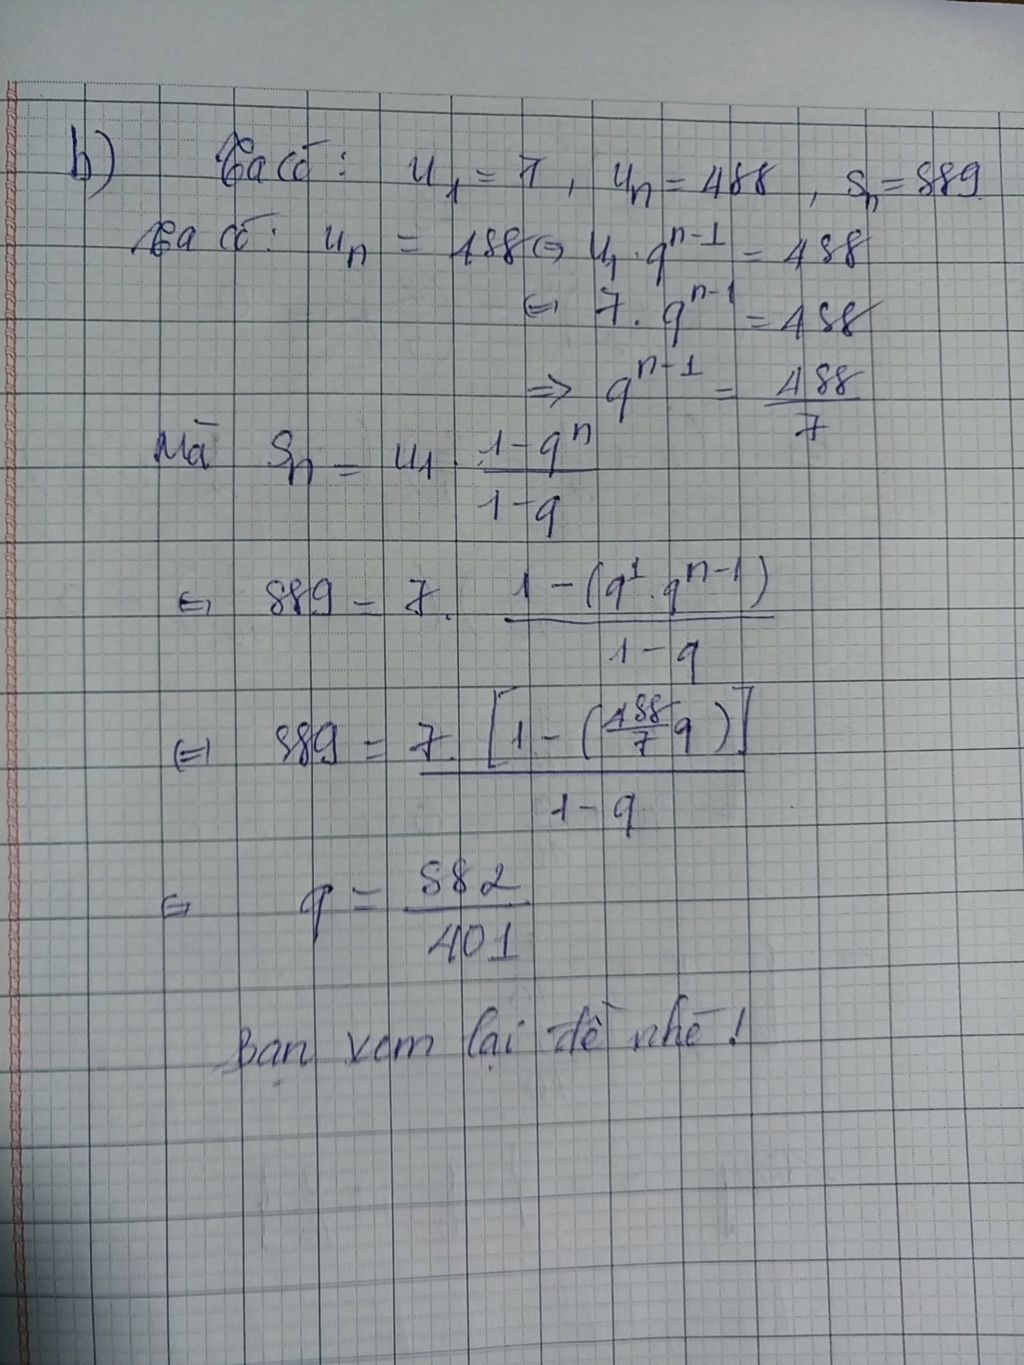 b) Ta có: u₁ = 7, uₙ = 488, Sₙ = 889
Ta có: uₙ = 488 ⇔ u₁.qⁿ⁻¹ = 488
⇔ 7.qⁿ⁻¹ = 488
⇒ qⁿ⁻¹ = 488/7
Mà Sₙ = u₁. (1-qⁿ)/(1-q)
⇔ 889 = 7. (1-(q¹.qⁿ⁻¹))/(1-q)
⇔ 889 = 7.[1-(488/7 q)]/(1-q)
⇔ q = 882/401
Bạn xem lại đề nhé!